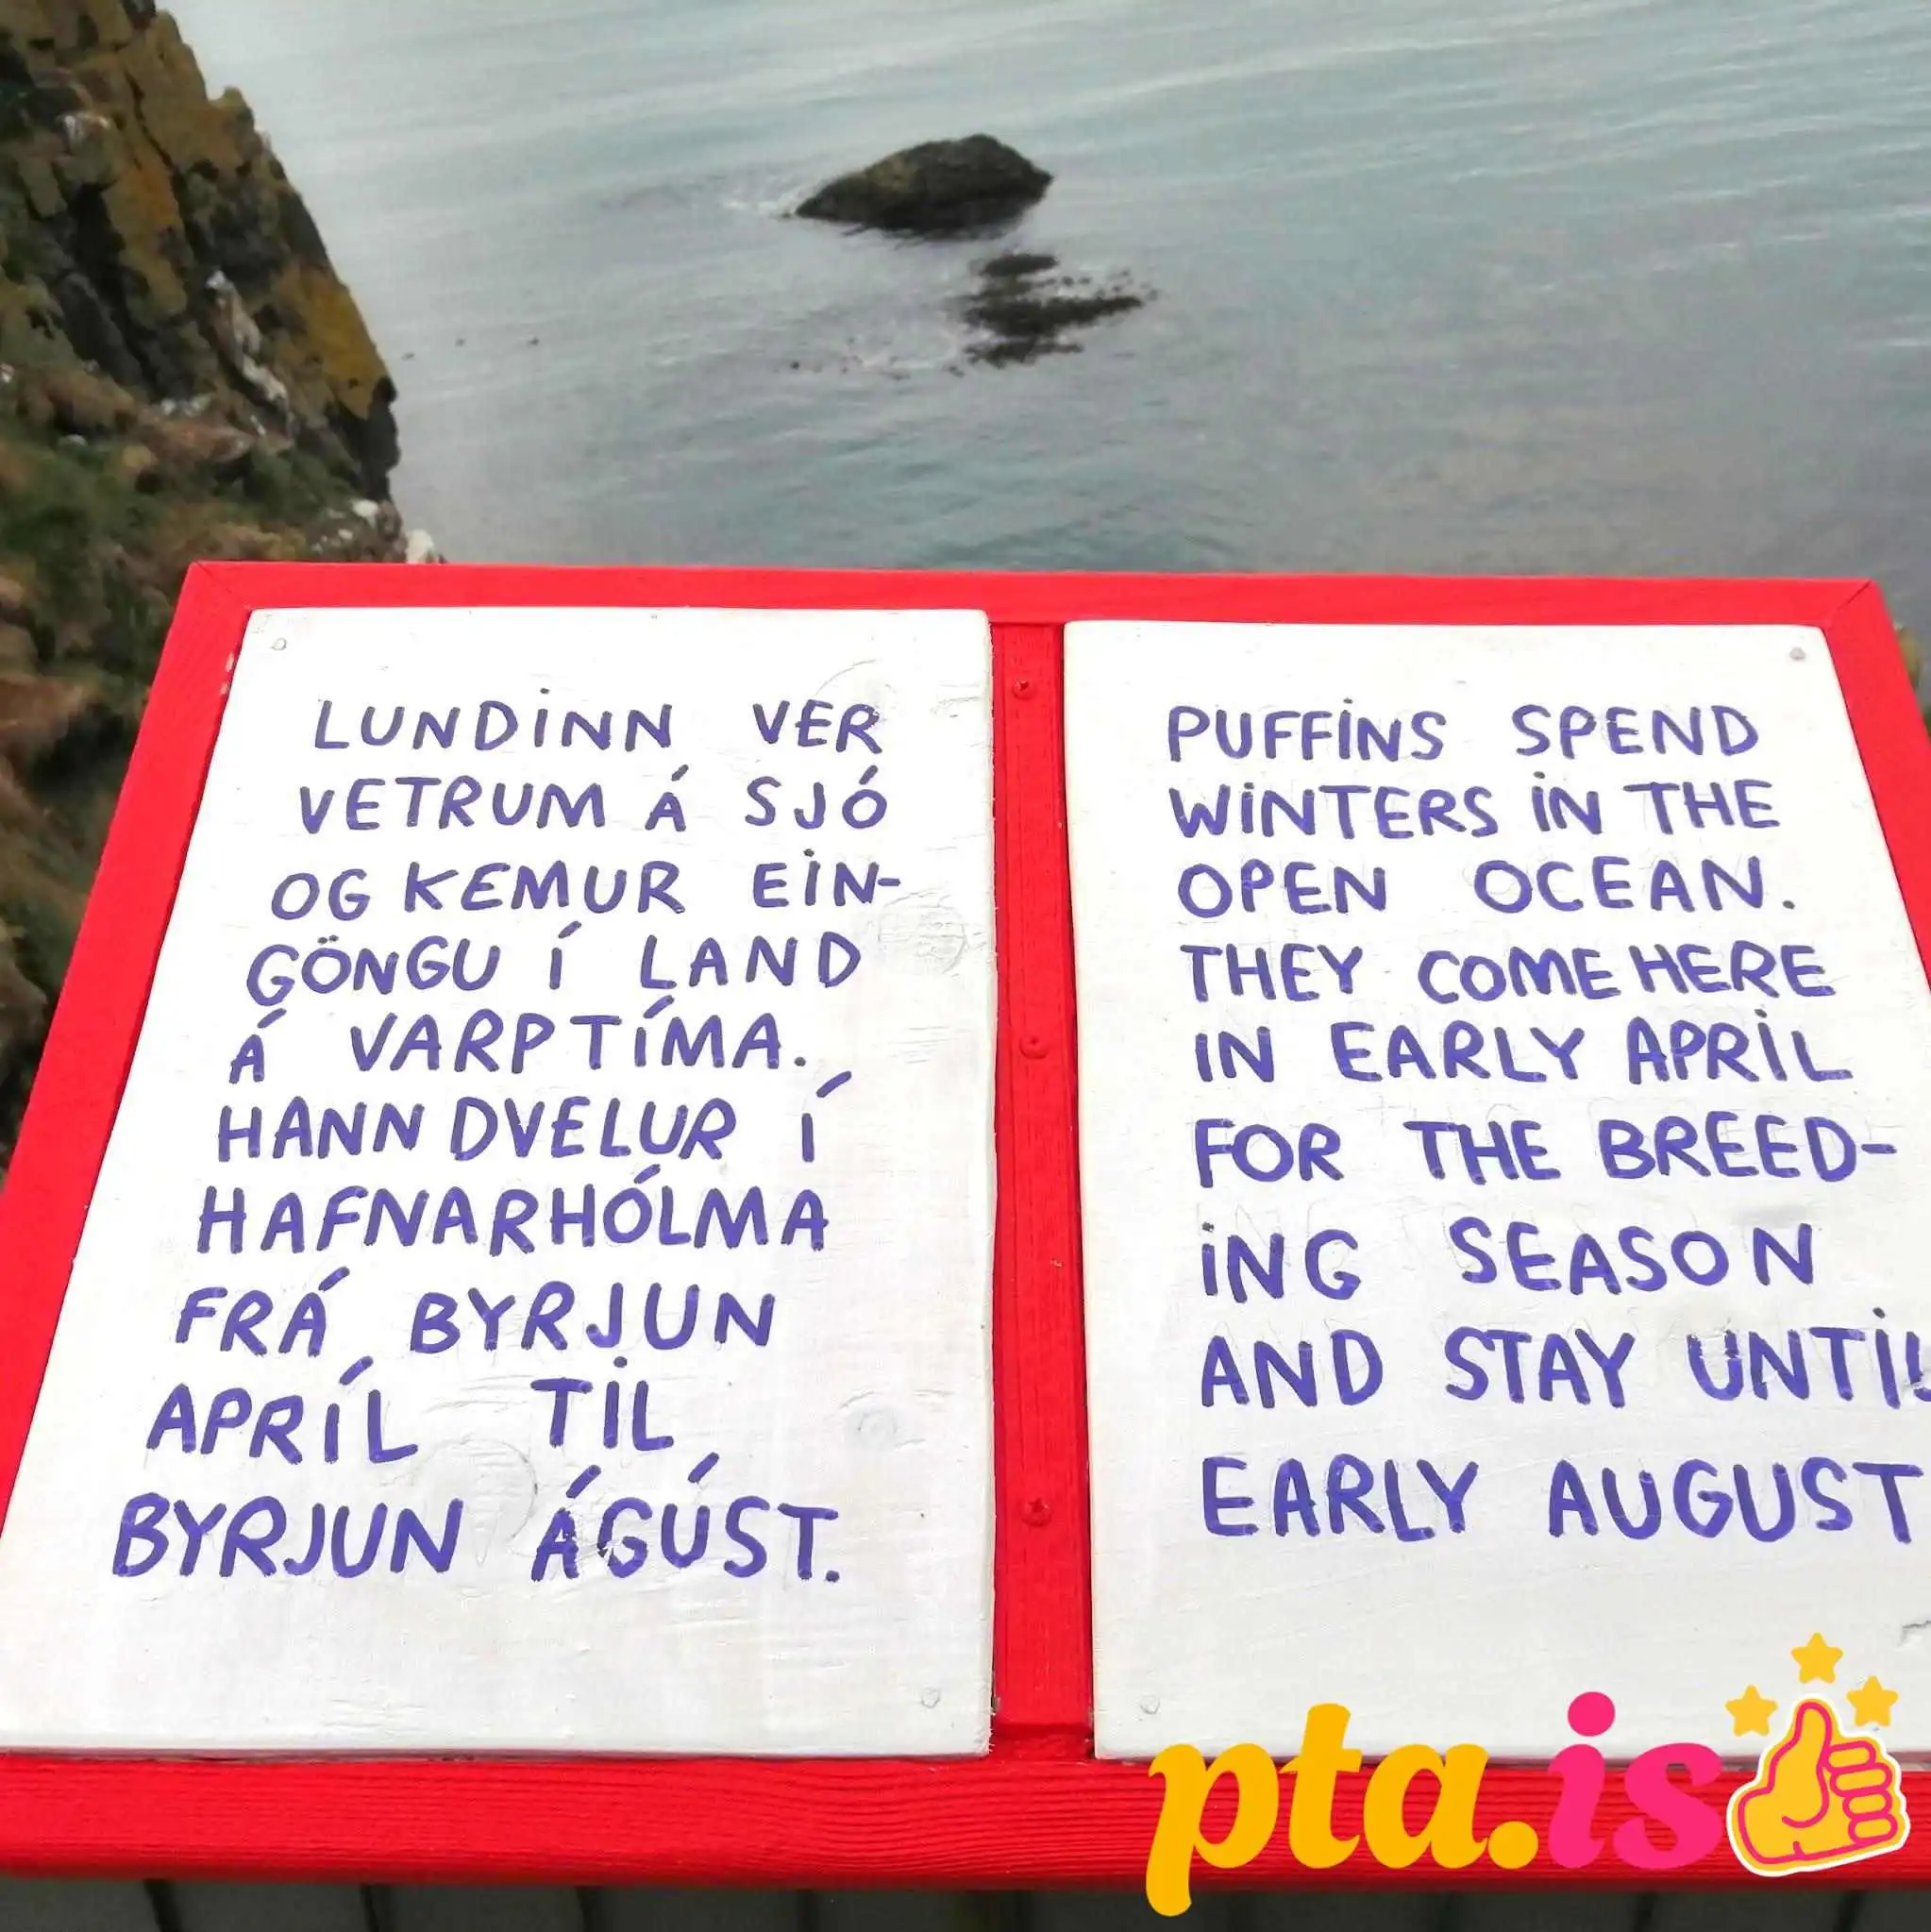 LUNDINN VER
VETRUM Á SJÓ
OG KEMUR EIN-
GÖNGU Í LAND
Á VARPTÍMA.
HANN DVELUR Í
HAFNARHÓLMA
FRÁ BYRJUN
APRÍL TIL
BYRJUN ÁGÚST.
PUFFINS SPEND
WINTERS IN THE
OPEN OCEAN.
THEY COME HERE
IN EARLY APRIL
FOR THE BREED-
ING SEASON
AND STAY UNTIL
EARLY AUGUST
pta.is